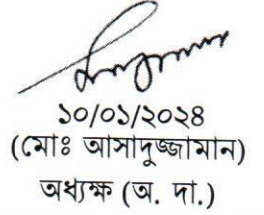 ১০/০১/২০২৪
(মোঃ আসাদুজ্জামান)
অধ্যক্ষ (অ. দা.)